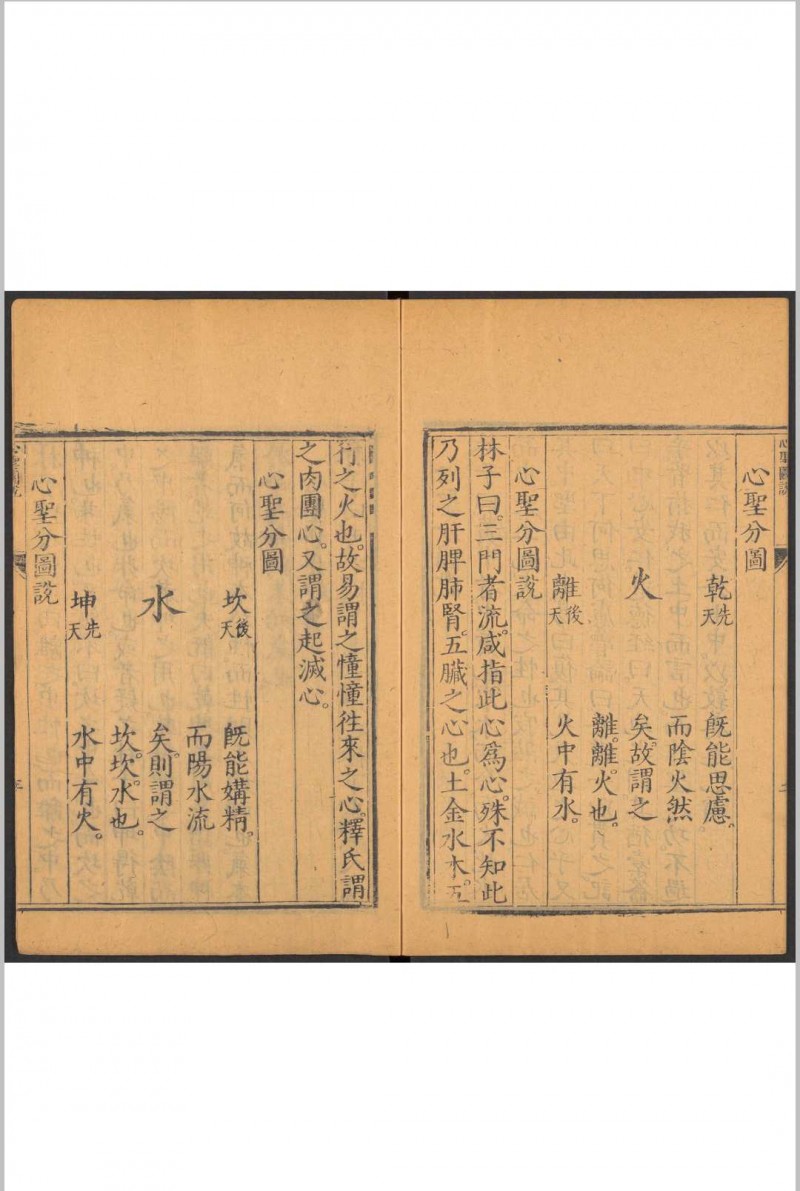 心聖圖說
心聖分圖
乾先天 既能思慮。
而陰火然
火 矣。故謂之
離。離。火也。
離後天 火中有水。
心聖分圖說
林子曰。三門者流。咸指此心爲心。殊不知此
乃列之肝脾肺腎。五臟之心也。土金水木。五
行之火也。故易謂之憧憧往來之心。釋氏謂
之肉團心。又謂之起滅心。
心聖分圖
坎後天 既能媾精。
而陽水流
水 矣。則謂之
坎。坎。水也。
坤先天 水中有火。
心聖分圖說